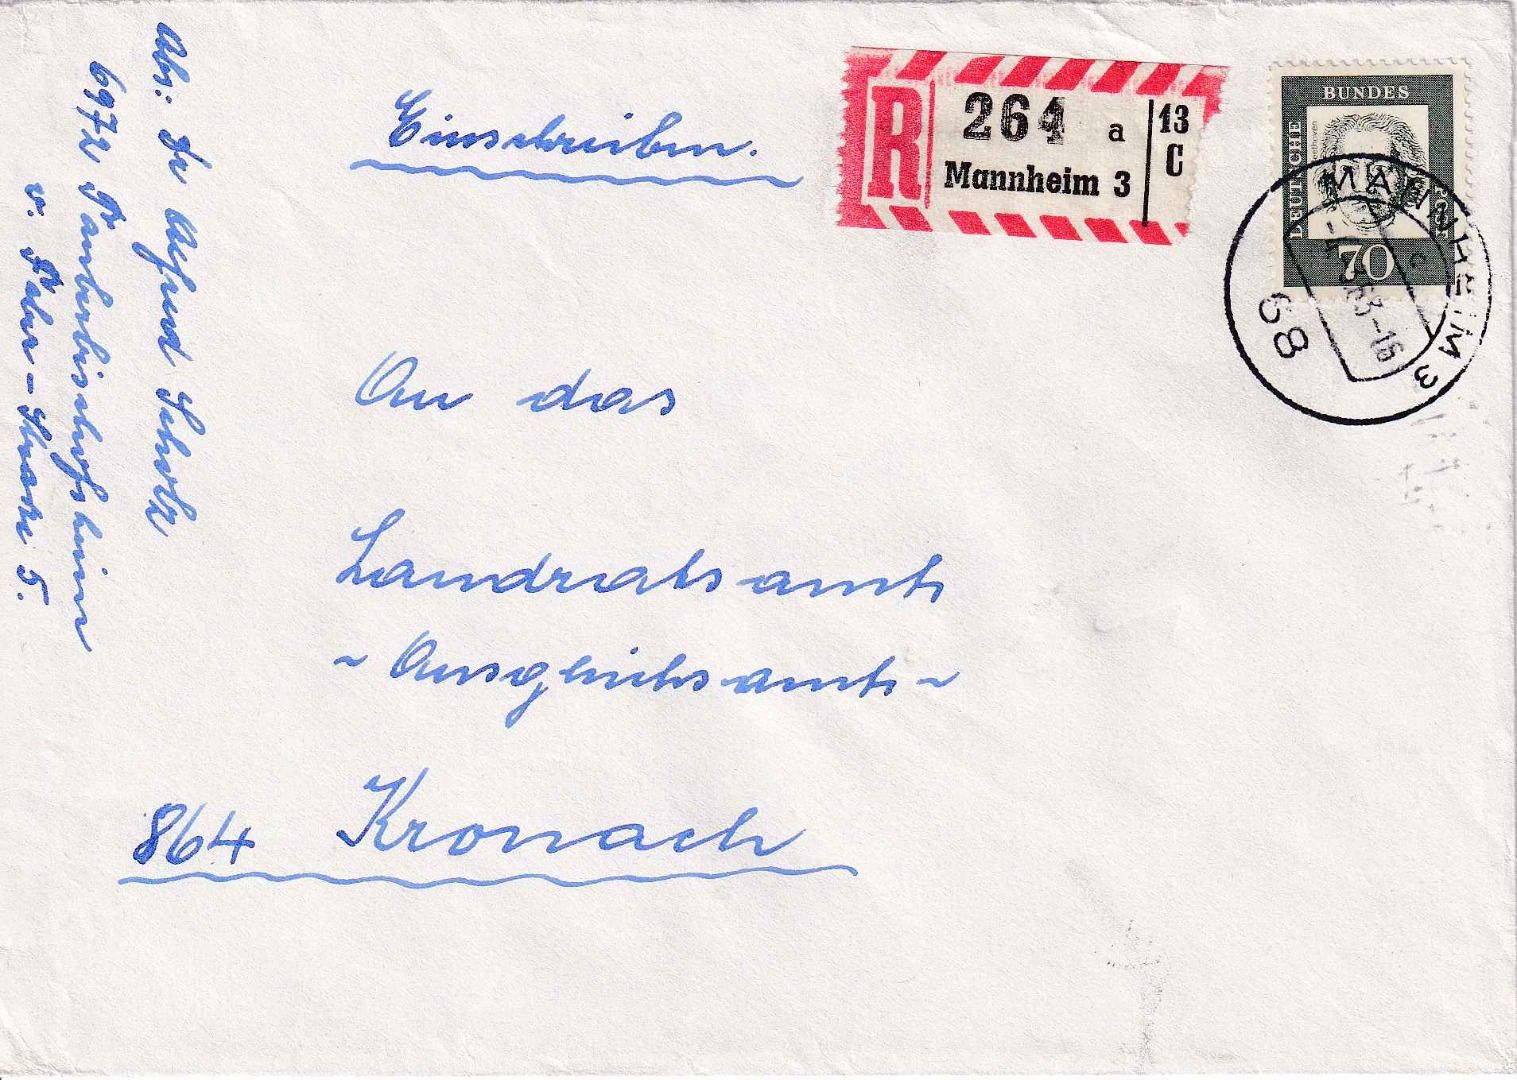 Abs: Dr Alfred Scholz
6972 Tauberbischofsheim
v. Eulerstrasse 5.
Einschreiben.
R
264 a
Mannheim 3
13
C
DEUTSCHE
BUNDES
POST
70
MANNHEIM 3
c
63-16
68
An das
Landratsamt
~ Ausgleichsamt ~
864 Kronach